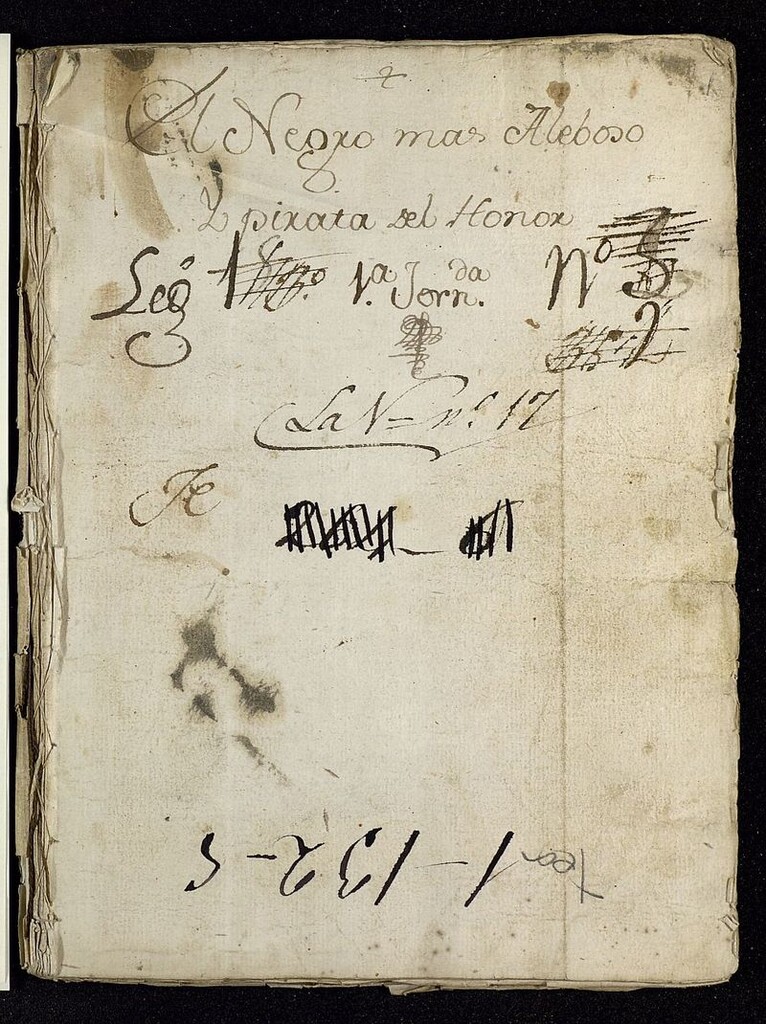 El Negro mas Aleboso
Y pirata del Honor
Leg.º 1.º 1.ª Jorn.da Nº 5
La V= n.º 17
Tea 1-132-5